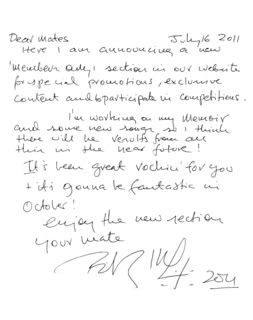 Dear Mates July 16 2011
Here I am announcing a new
'Members Only' section in our website
for special promotions, exclusive
content and to participate in competitions.
I'm working on my Memoir
and some new songs so I think
there will be results from all
this in the near future!
It's been great rockin' for you
+ it's gonna be fantastic in
October!
enjoy the new section
your mate
2011